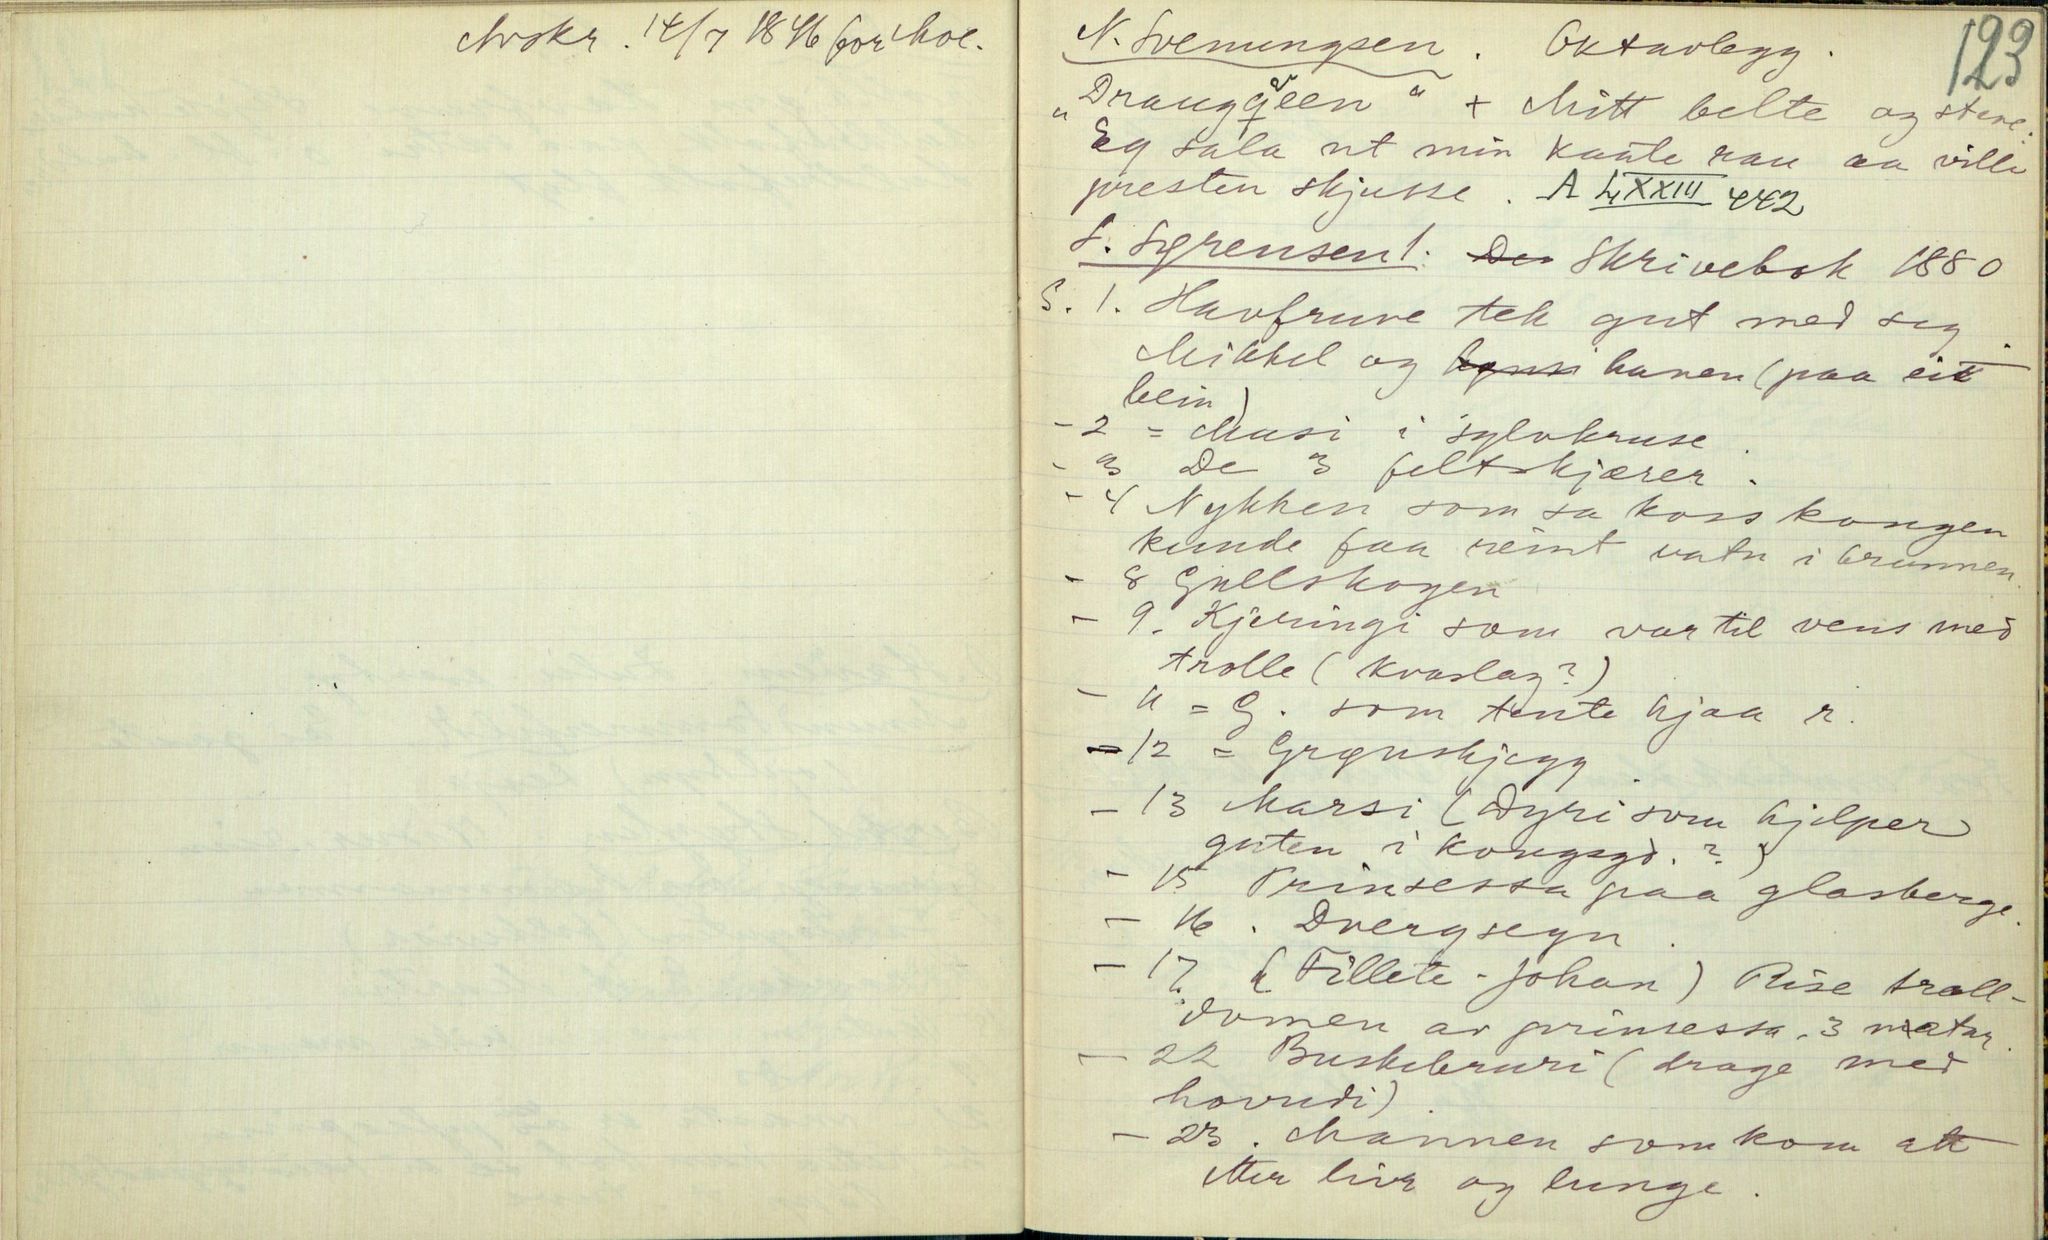 Avskr. 14/7 1846 for Moe.
123
N. Svenungsen. Oktavlegg.
"Draugqveen" + Mitt belte og stave.
Eg sala ut min kaate rau aa ville
presten skjusse. A LXXIII 442
S. Sørensen 1: Den Skrivebok 1880
S. 1. Havfruve tek gut med seg.
Mikkel og hanen (paa eit
bein)
- 2 = Musi i sylvkruse.
- 3 De 3 feltskjærer.
- 4 Nykken som sa koss kongen
kunde faa reint vatn i brunnen.
- 8 Gullskogen
- 9. Kjeringi som var til vens med
trolle (kvaslag?)
- 11 = G. som tente hjaa r.
- 12 = Grønskjegg
- 13 Marsi (Dyri som hjelper
guten i kongsgd.?)
- 15 Prinsessa paa glasberge.
- 16. Dvergsegn.
- 17. (Fillete-Johan) Rise troll-
domen av prinsessa. 3 nætar.
- 22 Buskebruri (drage med
hovudi).
- 23. Mannen som kom att
etter livr og lunge.